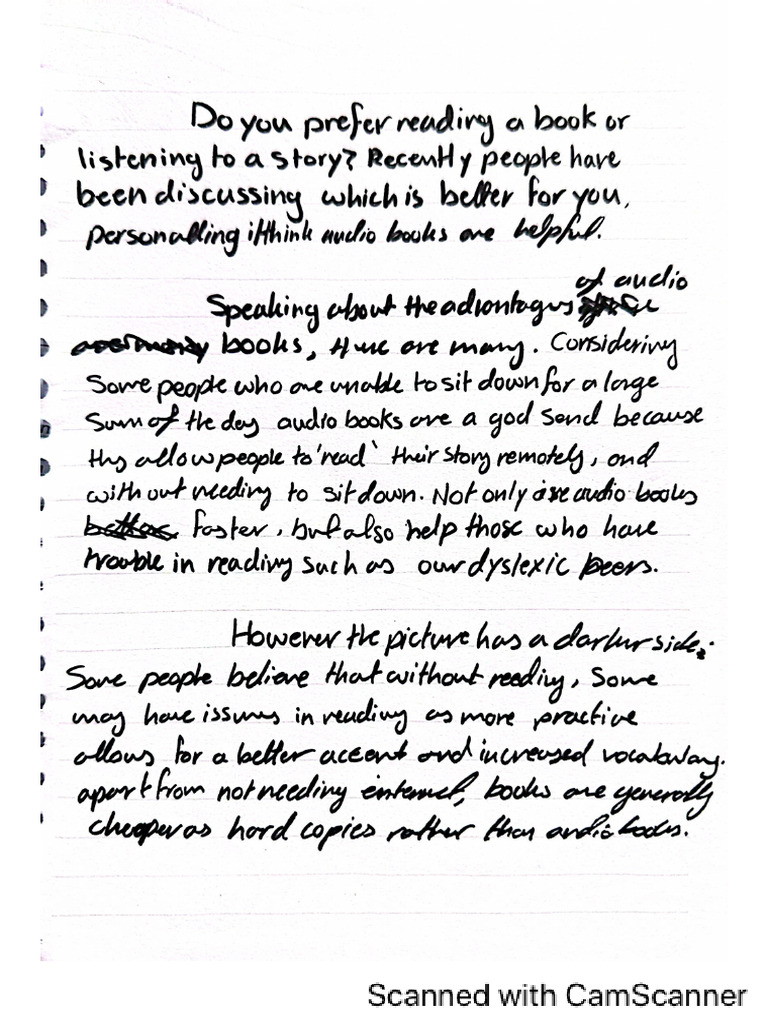 Do you prefer reading a book or
listening to a story? Recently people have
been discussing which is better for you,
personalling i think audio books are helpful.
of audio
Speaking about the advantages
books, there are many. Considering
Some people who are unable to sit down for a large
sum of the day audio books are a god send because
they allow people to 'read' their story remotely, and
without needing to sit down. Not only are audio books
faster, but also help those who have
trouble in reading such as our dyslexic peers.
However the picture has a darker side.
Some people believe that without reading, some
may have issues in reading as more practive
allows for a better accent and increased vocabulary.
apart from not needing internet, books are generally
cheaper as hard copies rather than audio books.
Scanned with CamScanner